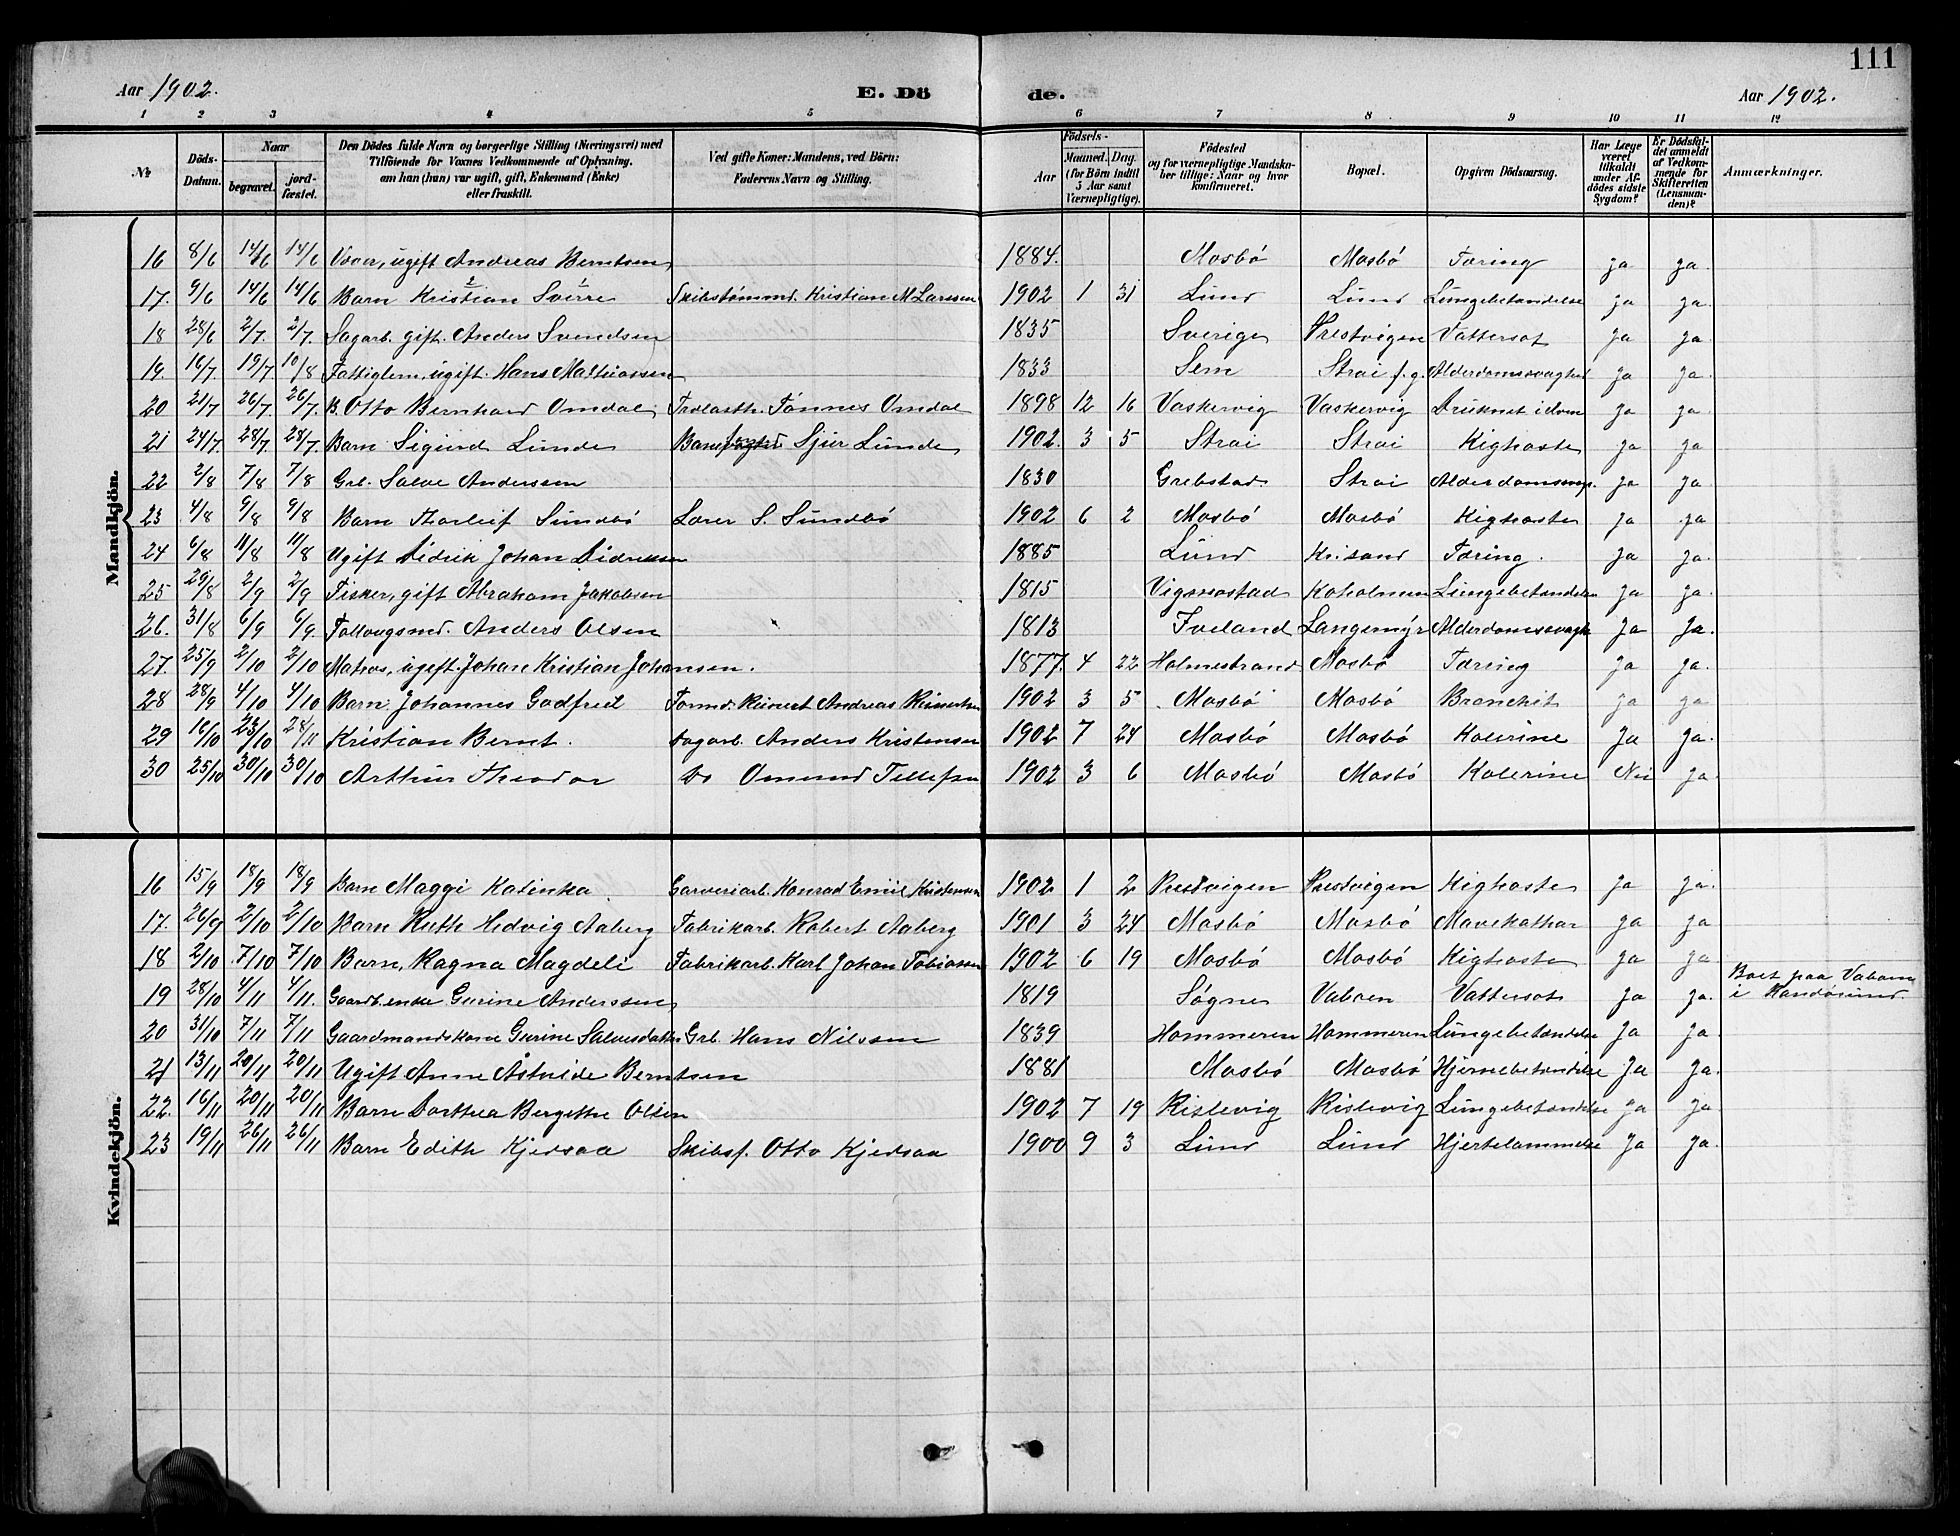 111
Aar 1902. E. Dö de. Aar 1902.
1 2 3 4 5 6 7 8 9 10 11 12
№
Döds-Datum.
Naar
begravet.
jordfæstet.
Den Dödes fulde Navn og borgerlige Stilling (Næringsvei) med
Tilföiende for Voxnes Vedkommende af Oplysning,
om han (hun) var ugift, gift, Enkemand (Enke)
eller fraskilt.
Ved gifte Koner: Mandens, ved Börn:
Faderens Navn og Stilling.
Födsels-
Aar
Maaned. Dag.
(for Börn indtil
5 Aar samt
Værnepligtige).
Födested
og for værnepligtige Mandskaber tillige: Naar og hvor
konfirmeret.
Bopæl.
Opgiven Dödsaarsag.
Har Læge
været
tilkaldt
under Afdödes sidste
Sygdom?
Er Dödsfaldet anmeldt
af Vedkommende for
Skifteretten
(Lensmanden)?
Anmærkninger.
Mandkjön.
16 8/6 14/6 14/6 ugift Andreas Berntsen 1884. Mosbö Mosbö Tæring ja ja.
17. 9/6 14/6 14/6 Barn Kristian Sverre Skibstømmd. Kristian M Larssen 1902 1 31 Lund Lund Lungebetændelse ja ja.
18 28/6 2/7. 2/7. Sagarb. gift. Anders Svendsen 1835 Sverige Prestvigen Vattersot ja ja.
19. 16/7. 19/7 10/8 Fattiglem, ugift. Hans Mathiassen 1833 Sem Strai f.g. Alderdomssvaghed ja ja.
20 21/7 26/7. 26/7. B. Otto Bernhard Omdal Tønnes Omdal 1898 12 16 Vaskervig Vaskervig Druknet ja ja
21 24/7 28/7. 28/7. Barn Sigurd Lunde Sjur Lunde 1902. 3 5 Strai Strai Kighoste ja ja
22 2/8 7/8 7/8 Grb. Salve Anderssen 1830 Grebstad. Strai ja ja
23 4/8 9/8 9/8 Barn Thorleif Sundbö Lærer S. Sundbö 1902 6 2 Mosbö Mosbö Kighoste ja ja
24 6/8 11/8 11/8 Ugift Didrik Johan Didriksen 1885 Lund Krisand Tæring. ja ja
25 29/8 2/9 2/9 Fisker, gift Abraham Jakobsen 1815 Vigmostad Koholmen Lungebetændelse ja ja.
26. 31/8 6/9 6/9. Anders Olsen 1813 Iveland Langemyr Alderdomssvagh ja ja.
27. 25/9 2/10 2/10 Matros, ugift. Johan Kristian Johansen. 1877. 4 22 Holmestrand Mosbö Tæring ja ja.
28 28/9 4/10 4/10 Barn Johannes Godfred Formd. Reinert Andreas Reinertsen 1902 3 5 Mosbö Mosbö Bronchit ja ja
29 16/10 23/10 28/11 Kristian Bernt. Dagarb. Anders Kristensen 1902 7 24 Mosbö Mosbö Kolerine ja ja.
30 25/10 30/10 30/10 Arthur Theodor Do Omund Tellefsen 1902 3 6 Mosbö Mosbö Kolerine Nei ja.
Kvindekjön.
16 15/9 18/9 18/9 Barn Maggi Katinka Garveriarb. Konrad Emil Kristensen 1902 1 2 Prestvigen Prestvigen Kighoste ja ja.
17. 26/9 2/10 2/10 Barn Ruth Hedvig Aaberg Fabrikarb. Robert Aaberg 1901 3 24 Mosbö Mosbö Mavekathar ja ja
18 2/10 7/10 7/10 Barn, Ragna Magdeli Fabrikarb. Karl Johan Tobiassen 1902 6 19 Mosbö Mosbö Kighoste ja ja
19 28/10 4/11 4/11. Gaardb. enke Gurine Anderssen 1819 Søgne Vaboen Vattersot ja ja. Boet paa i Randøsund.
20 31/10 7/11 7/11 Gaardmandskone Gurine Salvesdatter Grb. Hans Nilssen 1839 Hommeren Hommeren Lungebetændelse ja ja.
21 13/11 20/11 20/11 Ugift Anne Åstride Berntsen 1881 Mosbö Mosbö Hjernebetændelse ja ja.
22. 16/11 20/11 20/11 Barn Dorthea Bergithe Olsen 1902 7 19 Rislevig Rislevig Lungebetændelse ja ja
23 19/11 26/11 26/11 Barn Edith Kjedsaa Skibsf. Otto Kjedsaa 1900 9 3 Lund Lund Hjertelammelse ja ja.